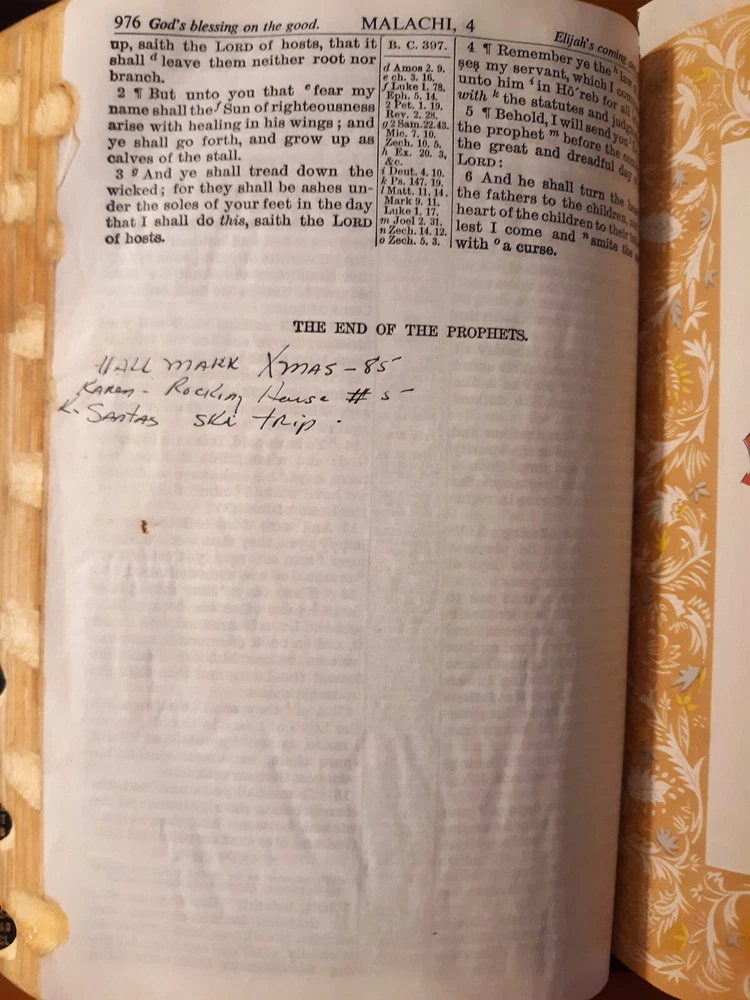 976 God's blessing on the good. MALACHI, 4 Elijah's coming
up, saith the LORD of hosts, that it
shall d leave them neither root nor
branch.
2 ¶ But unto you that e fear my
name shall the f Sun of righteousness
arise with healing in his wings; and
ye shall go forth, and grow up as
calves of the stall.
3 g And ye shall tread down the
wicked; for they shall be ashes un-
der the soles of your feet in the day
that I shall do this, saith the LORD
of hosts.
B. C. 397.
d Amos 2. 9.
e ch. 3. 16.
f Luke 1. 78.
Eph. 5. 14.
2 Pet. 1. 19.
Rev. 2. 28.
g 2 Sam. 22. 43.
Mic. 7. 10.
Zech. 10. 5.
h Ex. 20. 3,
&c.
i Deut. 4. 10.
k Ps. 147. 19.
l Matt. 11. 14.
Mark 9. 11.
Luke 1. 17.
m Joel 2. 31.
n Zech. 14. 12.
o Zech. 5. 3.
4 ¶ Remember ye the h law
ses my servant, which I
unto him i in Hō'reb for all
with k the statutes and
5 ¶ Behold, I will send you
the prophet m before the
the great and dreadful day
LORD:
6 And he shall turn the
the fathers to the children,
heart of the children to their
lest I come and n smite the
with o a curse.
THE END OF THE PROPHETS.
HALL MARK XMAS - 85
Karen - Rocking Horse # 5 -
K. Santas Ski trip .